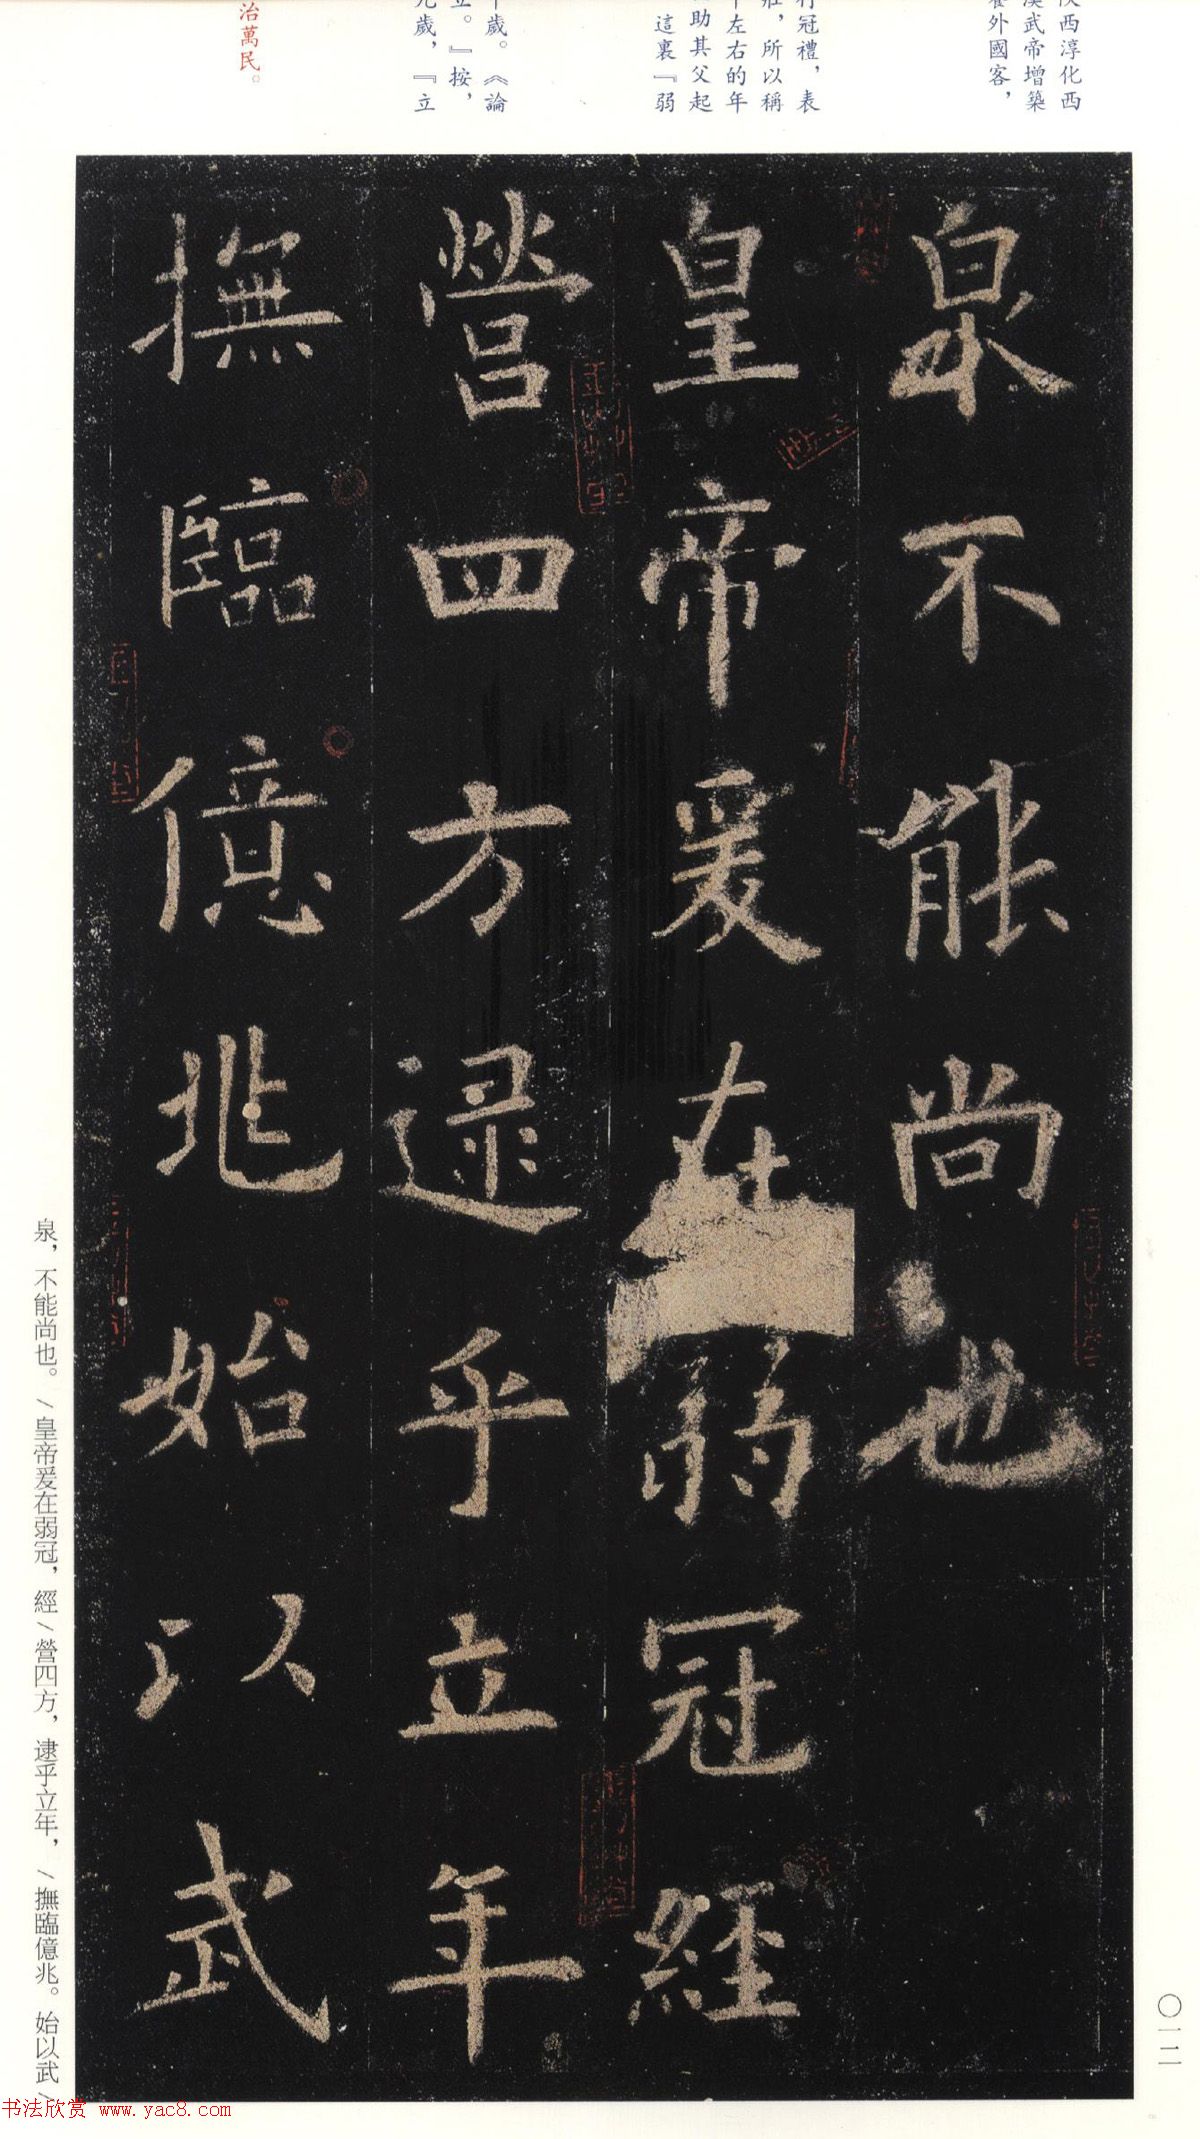 陝西淳化西
漢武帝增築
外國客，
行冠禮，表
壯，所以稱
左右的年
助其父起
這裏『弱
十歲。《論
立。』按，
九歲，『立
治萬民。
泉不能尚也
皇帝爰在弱冠經
營四方逮乎立年
撫臨億兆始以武
泉，不能尚也。/皇帝爰在弱冠，經/營四方，逮乎立年，/撫臨億兆。始以武/
〇一二
书法欣赏 www.yac8.com